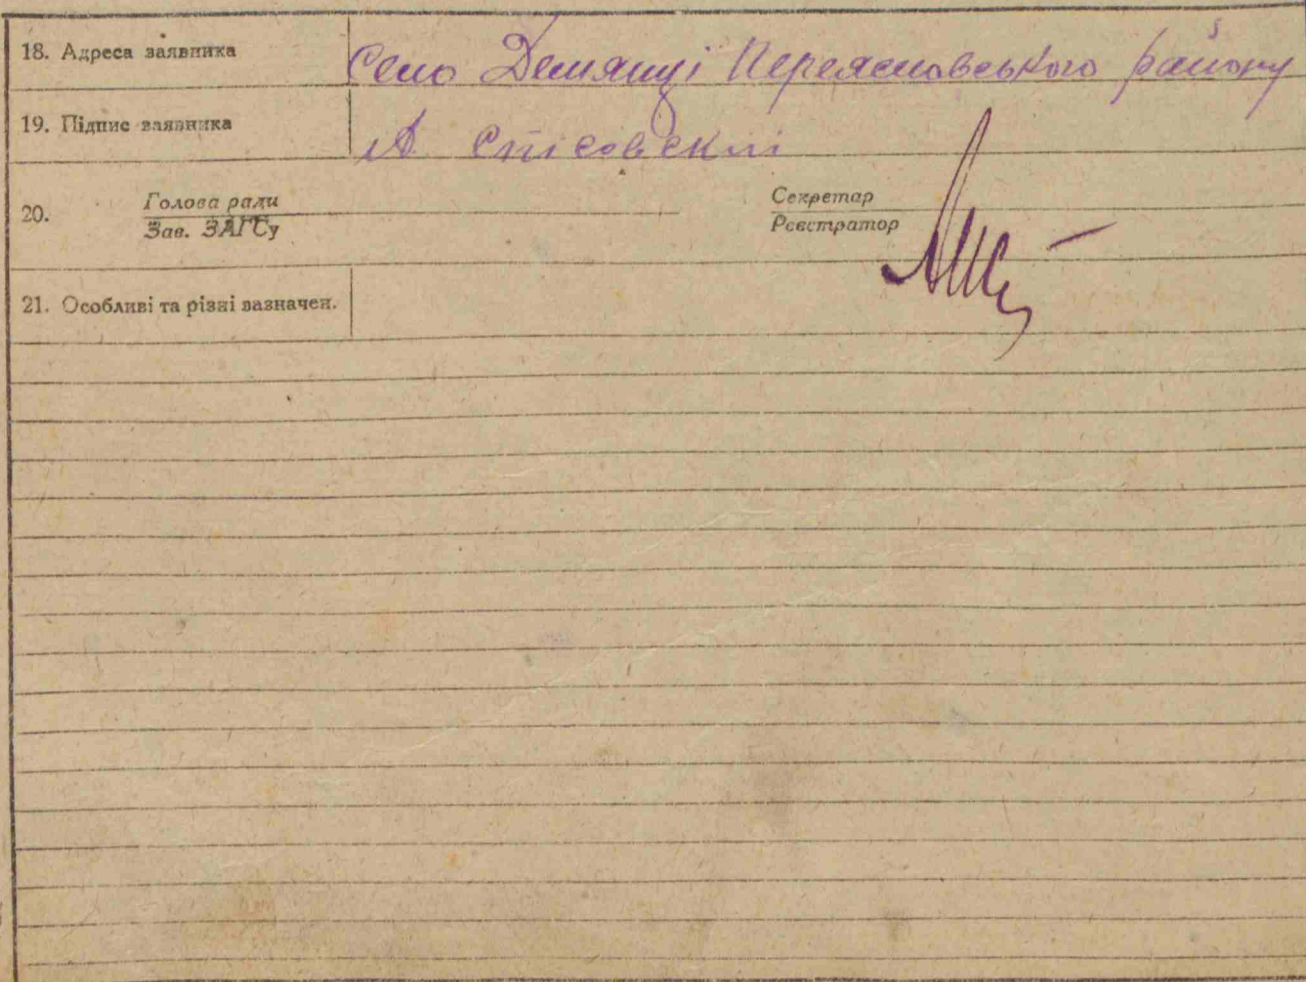 18. Адреса заявника Село Демянці Переяславського району
19. Підпис заявника А
20. Голова ради Секретар
Зав. ЗАГСу Реєстратор
21. Особливі та різні зазначен.